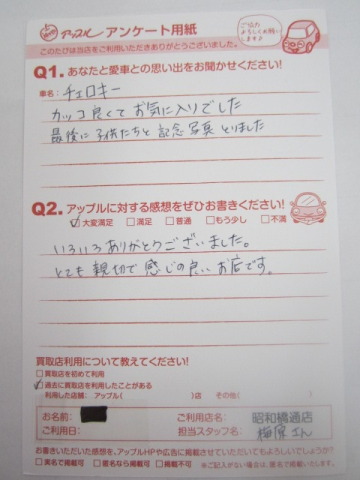 アップル アンケート用紙
ご協力
よろしくお願い
します♪
このたびは当店をご利用いただきありがとうございました。
Q1.あなたと愛車との思い出をお聞かせください!
車名: チェロキー
カッコ良くてお気に入りでした
最後に子供たちと記念写真とりました
Q2.アップルに対する感想をぜひお書きください!
☑大変満足 □満足 □普通 □もう少し □不満
いろいろありがとうございました。
とても親切で感じの良いお店です。
買取店利用について教えてください!
□買取店を初めて利用
☑過去に買取店を利用したことがある
利用した店舗: アップル( )店 その他( )
お名前: ご利用店名: 昭和橋通店
ご利用日: 担当スタッフ名: 梅原さん
お書きいただいた感想を、アップルHPや広告に掲載させていただいてもよろしいでしょうか?
□実名で掲載可 □匿名なら掲載可 □掲載不可 ※ご記入がない場合は、匿名で掲載いたします。